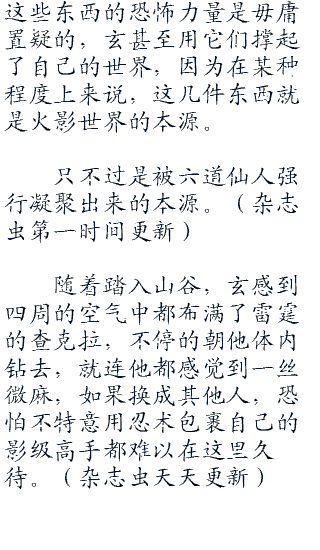 这些东西的恐怖力量是毋庸
置疑的，玄甚至用它们撑起
了自己的世界，因为在某种
程度上来说，这几件东西就
是火影世界的本源。
只不过是被六道仙人强
行凝聚出来的本源。（杂志
虫第一时间更新）
随着踏入山谷，玄感到
四周的空气中都布满了雷霆
的查克拉，不停的朝他体内
钻去，就连他都感觉到一丝
微麻，如果换成其他人，恐
怕不特意用忍术包裹自己的
影级高手都难以在这里久
待。（杂志虫天天更新）